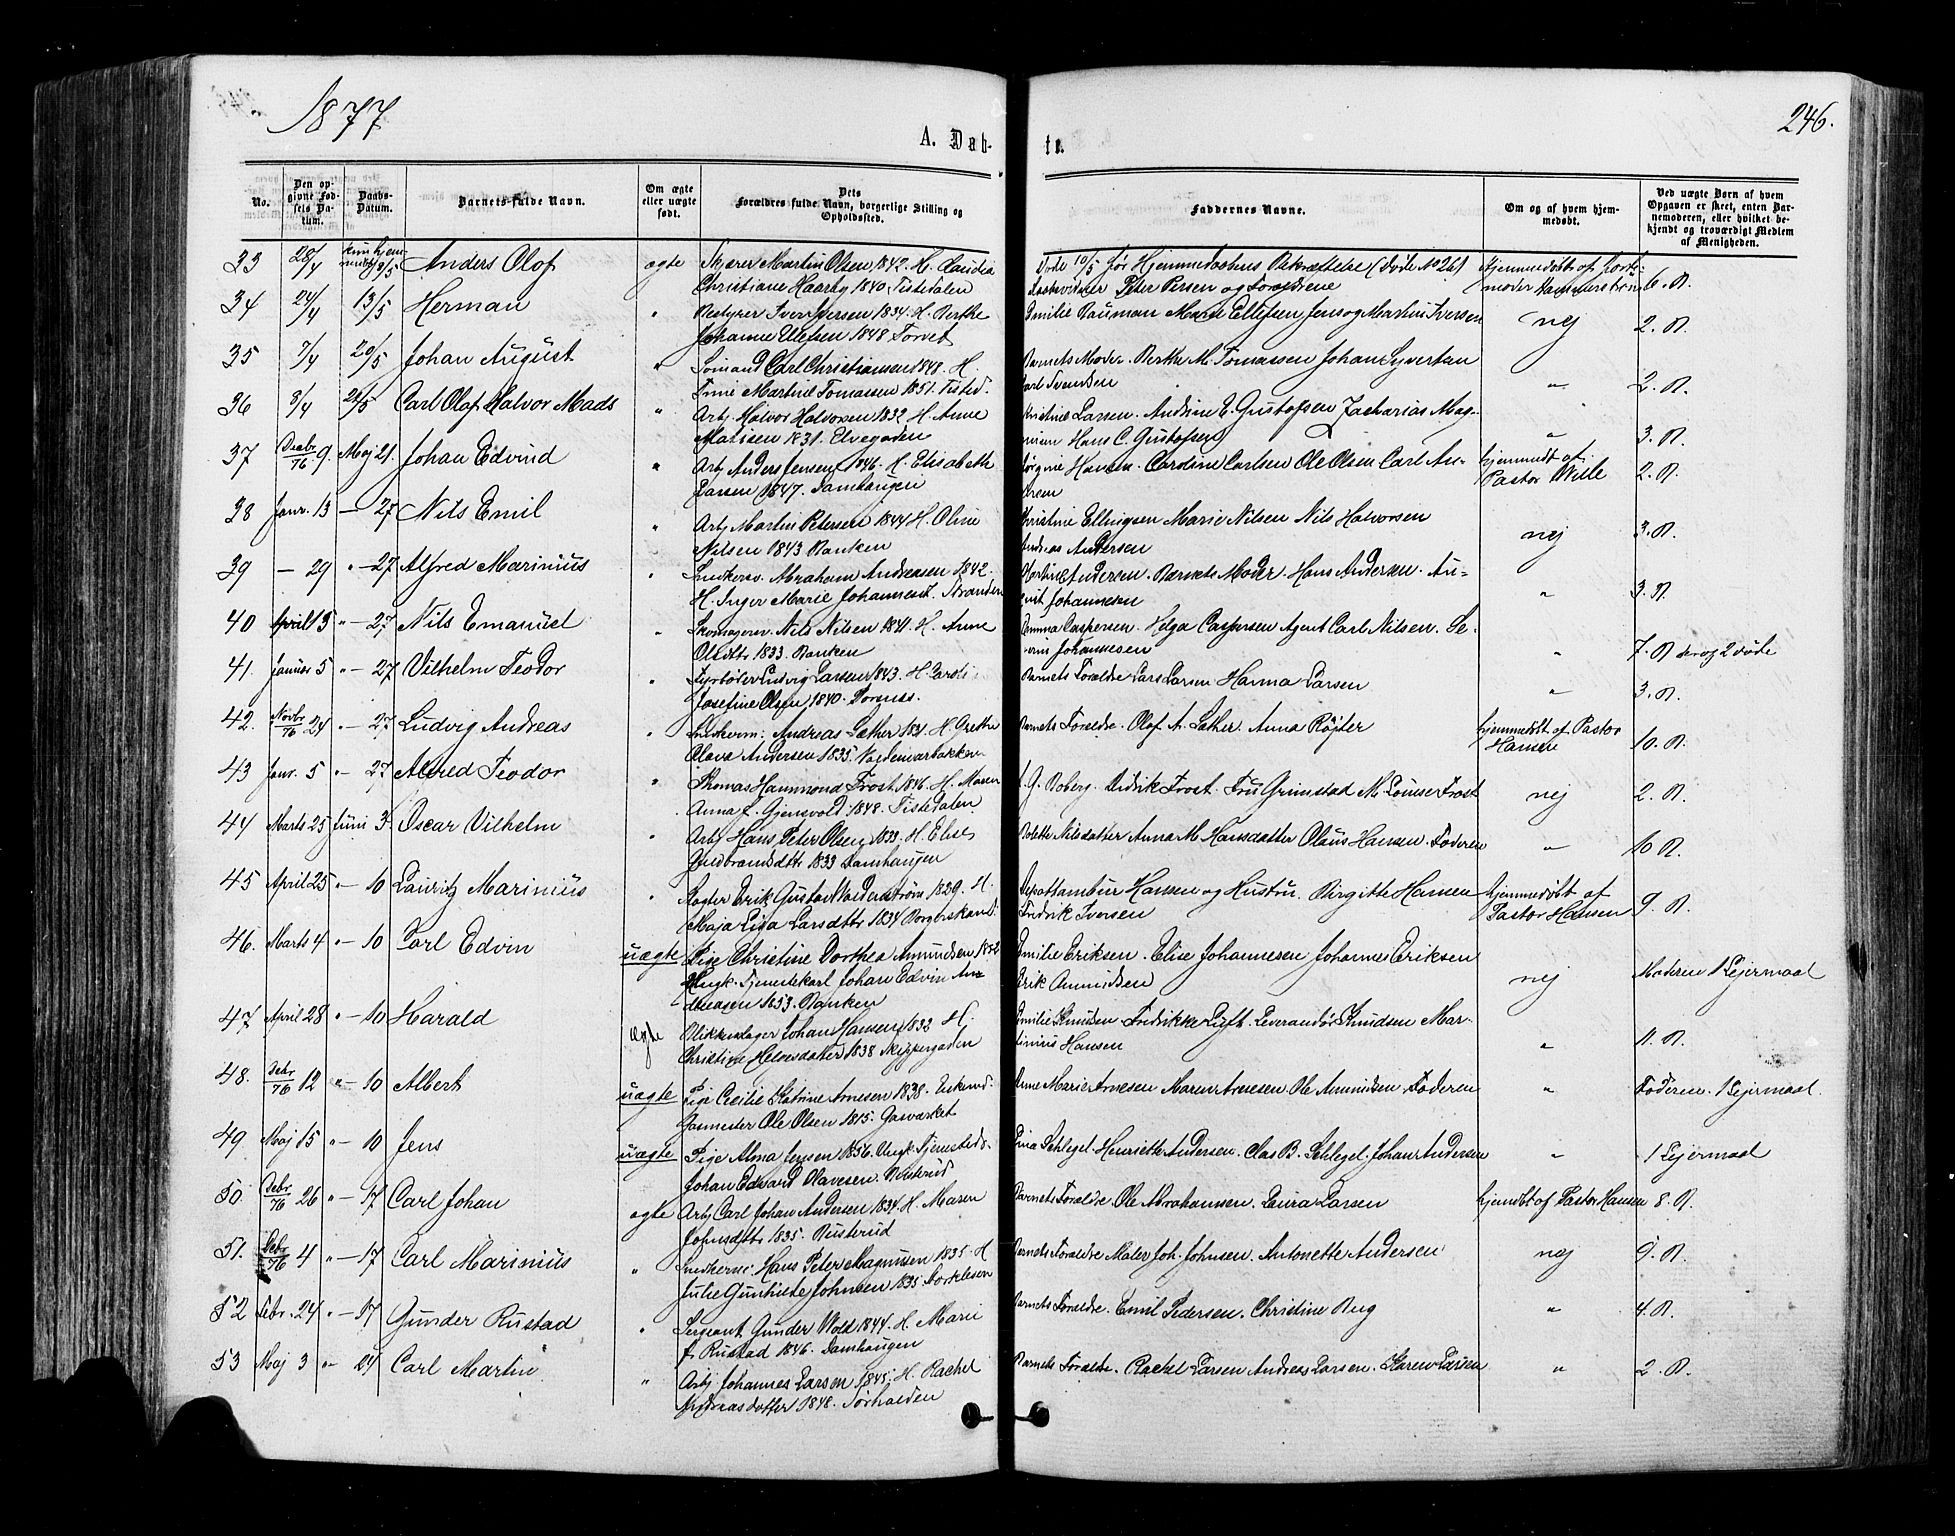 1877
246.
A. Døb-
te.
No.
Den op-
givne Fød-
sels Da-
tum.
Daabs-
Datum.
Barnets fulde Navn.
Om ægte
eller uægte
født.
Dets
Forældres fulde Navn, borgerlige Stilling og
Opholdssted.
Faddernes Navne.
Om og af hvem hjem-
medøbt.
Ved uægte Børn af hvem
Opgaven er skeet, enten Bar-
nemoderen, eller hvilket be-
kjendt og troværdigt Medlem
af Menigheden.
33 28/4 9/5 Anders Olof ægte Martin Olsen 1842. H. Claudia
Christiane Haarby 1840 Tistedalen
Døde 10/5 før Hjemmedaabens Bekræftelse (Døde No 26)
Peter Persen og Forældrene
Hjemmedøbt af Jorde-
moder 6. B.
34 24/4 13/5 Herman " Bestyrer Iver Iversen 1834. H. Berthe
Johanne Ellefsen 1848 Torvet
Emilie Bauman Marie Ellefsen Jens og Martin Iversen nej 2. B.
35 7/4 20/5 Johan August " Sømand Carl Christiansen 1848. H.
Trine Martine Tomassen 1851. Tisted.
Barnets Moder. Berthe M. Tomassen Johan Syvertsen
Carl Svendsen " 2. B.
36 8/4 21/5 Carl Olaf Halvor Mads " Arb. Halvor Halvorsen 1832 H. Anne
Matisen 1831. Elvegaden
Kristine Larsen. Andrine E. Gustofsen Zacharias Mag-
nusen Hans C. Gustofsen " 3. B.
37 Decbr/76 9. Maj 21. Johan Edvind " Arb. Anders Jensen 1846. H. Elisabeth
Larsen 1847. Damhaugen
Jørgine Hansen. Caroline Carlsen Ole Olsen Carl An-
dresen
hjemmedt af
Pastor Wille 2. B.
38 Janr. 13 — 27 Nils Emil " Arb. Martin Petersen 1844 H. Oline
Nilsen 1843 Banken
Christine Ellingsen Marie Nilsen Nils Halvorsen
Andreas Andersen nej 3. B.
39 — 29 " — 27 Alfred Marinius " Snedkersv. Abraham Andreasen 1842.
H. Inger Marie Johannesd. Stranden
Martine Andersen. Barnets Moder. Hans Andersen. Au-
gust Johannesen " 3. B.
40 April 13 " — 27 Nils Emanuel " Skomagersv. Nils Nilsen 1841. H. Anne
Olsdtr 1833. Banken
Emma Caspersen. Helga Caspersen Agent Carl Nilsen. Se-
verin Johannesen " 7. B deraf 2 døde
41. Januar 5 " — 27 Vilhelm Teodor " Fyrbøder Ludvig Larsen 1843. H. Caroli
Josefine Olsen 1840.
Barnets Forældre Lars Larsen Hanna Larsen " 3. B.
42. Novbr/76 24 " — 27 Ludvig Andreas " Andreas Sæther 1831. H. Grethe
Olava Andersen 1835.
Barnets Forældre. Olaf A. Sæther. Anna Røgter
hjemmedøbt af Pastor
Hansen 10. B.
43 Janr. 5 " — 27 Alfred Teodor " Thomas Hammond Frost 1846. H. Maren
Anna f. Gjensvold 1848. Tistedalen.
Boberg. Didrik Frost. Fru Grimstad M. Louise Frost nej 2. B.
44 Marts 25 Juni 3 Oscar Vilhelm " Arb. Hans Peter Olsen 1833. H. Elise
Gulbrandsdtr 1833 Damhaugen
Bolette Nilsdatter Anna M. Hansdatter Olaus Hansen. Faderen " 10 B.
45 April 25 " — 10 Lauritz Marinius " Erik Gustav 1839. H.
Maja Lisa Larsdtr 1834
Hansen og Hustru. Birgitte Hansen
Fredrik Iversen
Hjemmedøbt af
Pastor Hansen 9. B.
46. Marts 4 " — 10 Carl Edvin uægte Pige Christine Dorthea Amundsen 1852
Ungk. Tjenestekarl Johan Edvin An-
dreasen 1853. Banken
Emilie Eriksen. Elise Johannesen Johanne Eriksen
Erik Amundsen nej Moderen 1 Lejermaal
47 April 28 " — 10 Harald ægte Blikkenslager Johan Hansen 1833 H.
Christine Helvesdatter 1838 Skippergaden
Emilie Knudsen Fredrikke Luft. Leverandør Knudsen Mar-
tinius Hansen " 11. B.
48. Debr/76 12 " — 10 Albert uægte Pige Cecilie Katrine Arnesen 1838.
Gasmester Ole Olsen 1815. Gasværket
Anne Marie Arnesen Maren Arnesen Ole Amundsen Faderen " Faderen. 1 Lejermaal.
49. Maj 15 " — 10 Jens uægte Pige Alma Jensen 1856. Ungk. Tjenested.
Johan Edvard Olavesen. Busterud
Schlegel. Henriette Andersen. Clas B. Schlegel. Johan Andersen " 1 Lejermaal
50. Debr/76 26 " — 17 Carl Johan ægte Arb. Carl Johan Andersen 1834. H. Maren
Johnsdtr 1835. Busterud
Barnets Forældre Ole Abrahamsen. Laura Larsen hjemdøbt af Pastor Hansen 8. B.
51. Debr/76 4 " — 17 Carl Marinius " Hans Peter Magnusen 1835. H
Julie Gunhilde Johnsen 1835.
Barnets Forældre Maler Joh. Johnsen. Antonette Andersen nej 9. B.
52 Febr. 24 " — 17 Gunder Rustad " Sergeant Gunder Wold 1844. H. Marie
f. Rustad 1846. Damhaugen
Barnets Forældre. Emil Pedersen. Christine Bug " 4. B.
53 Maj 3 " — 24 Carl Martin " Arb. Johannes Larsen 1845. H. Rachel
Andreasdatter 1848. Sørhalden
Barnets Forældre. Rachel Larsen Andreas Larsen. Karen Larsen " 2. B.